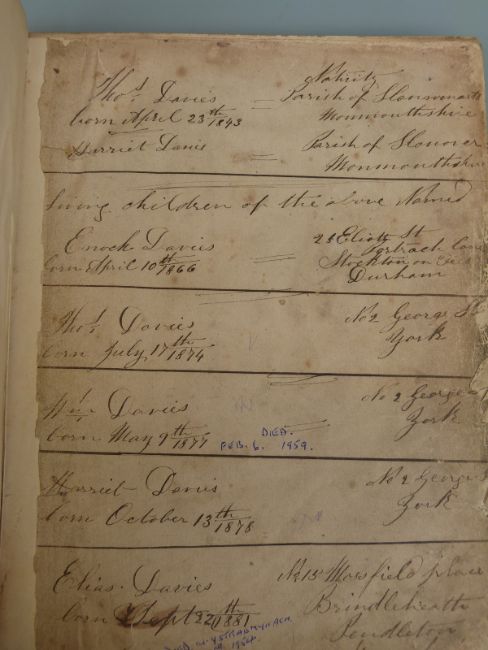 Nativity
Thos. Davies = Parish of
born April 23th 1843 Monmouthshire
Harriet Davis = Parish of Llanover
Monmouthshire
Living children of the above Named
Enoch Davies 21 Eliott St
born April 10th 1866 = Portrack Lane
Stockton on Tees
Durham
Thos. Davies No 2 George St
born July 17th 1874 York
Wm Davies No 2 George
born May 9th 1877 York
DIED.
FEB. 6. 1959.
Harriet Davis No 2 George
born October 13th 1878 York
Elias. Davies No 15 Moesfield place
born Sept 22th 1881 Brindleheath
Pendleton
YSTRADMYNACH